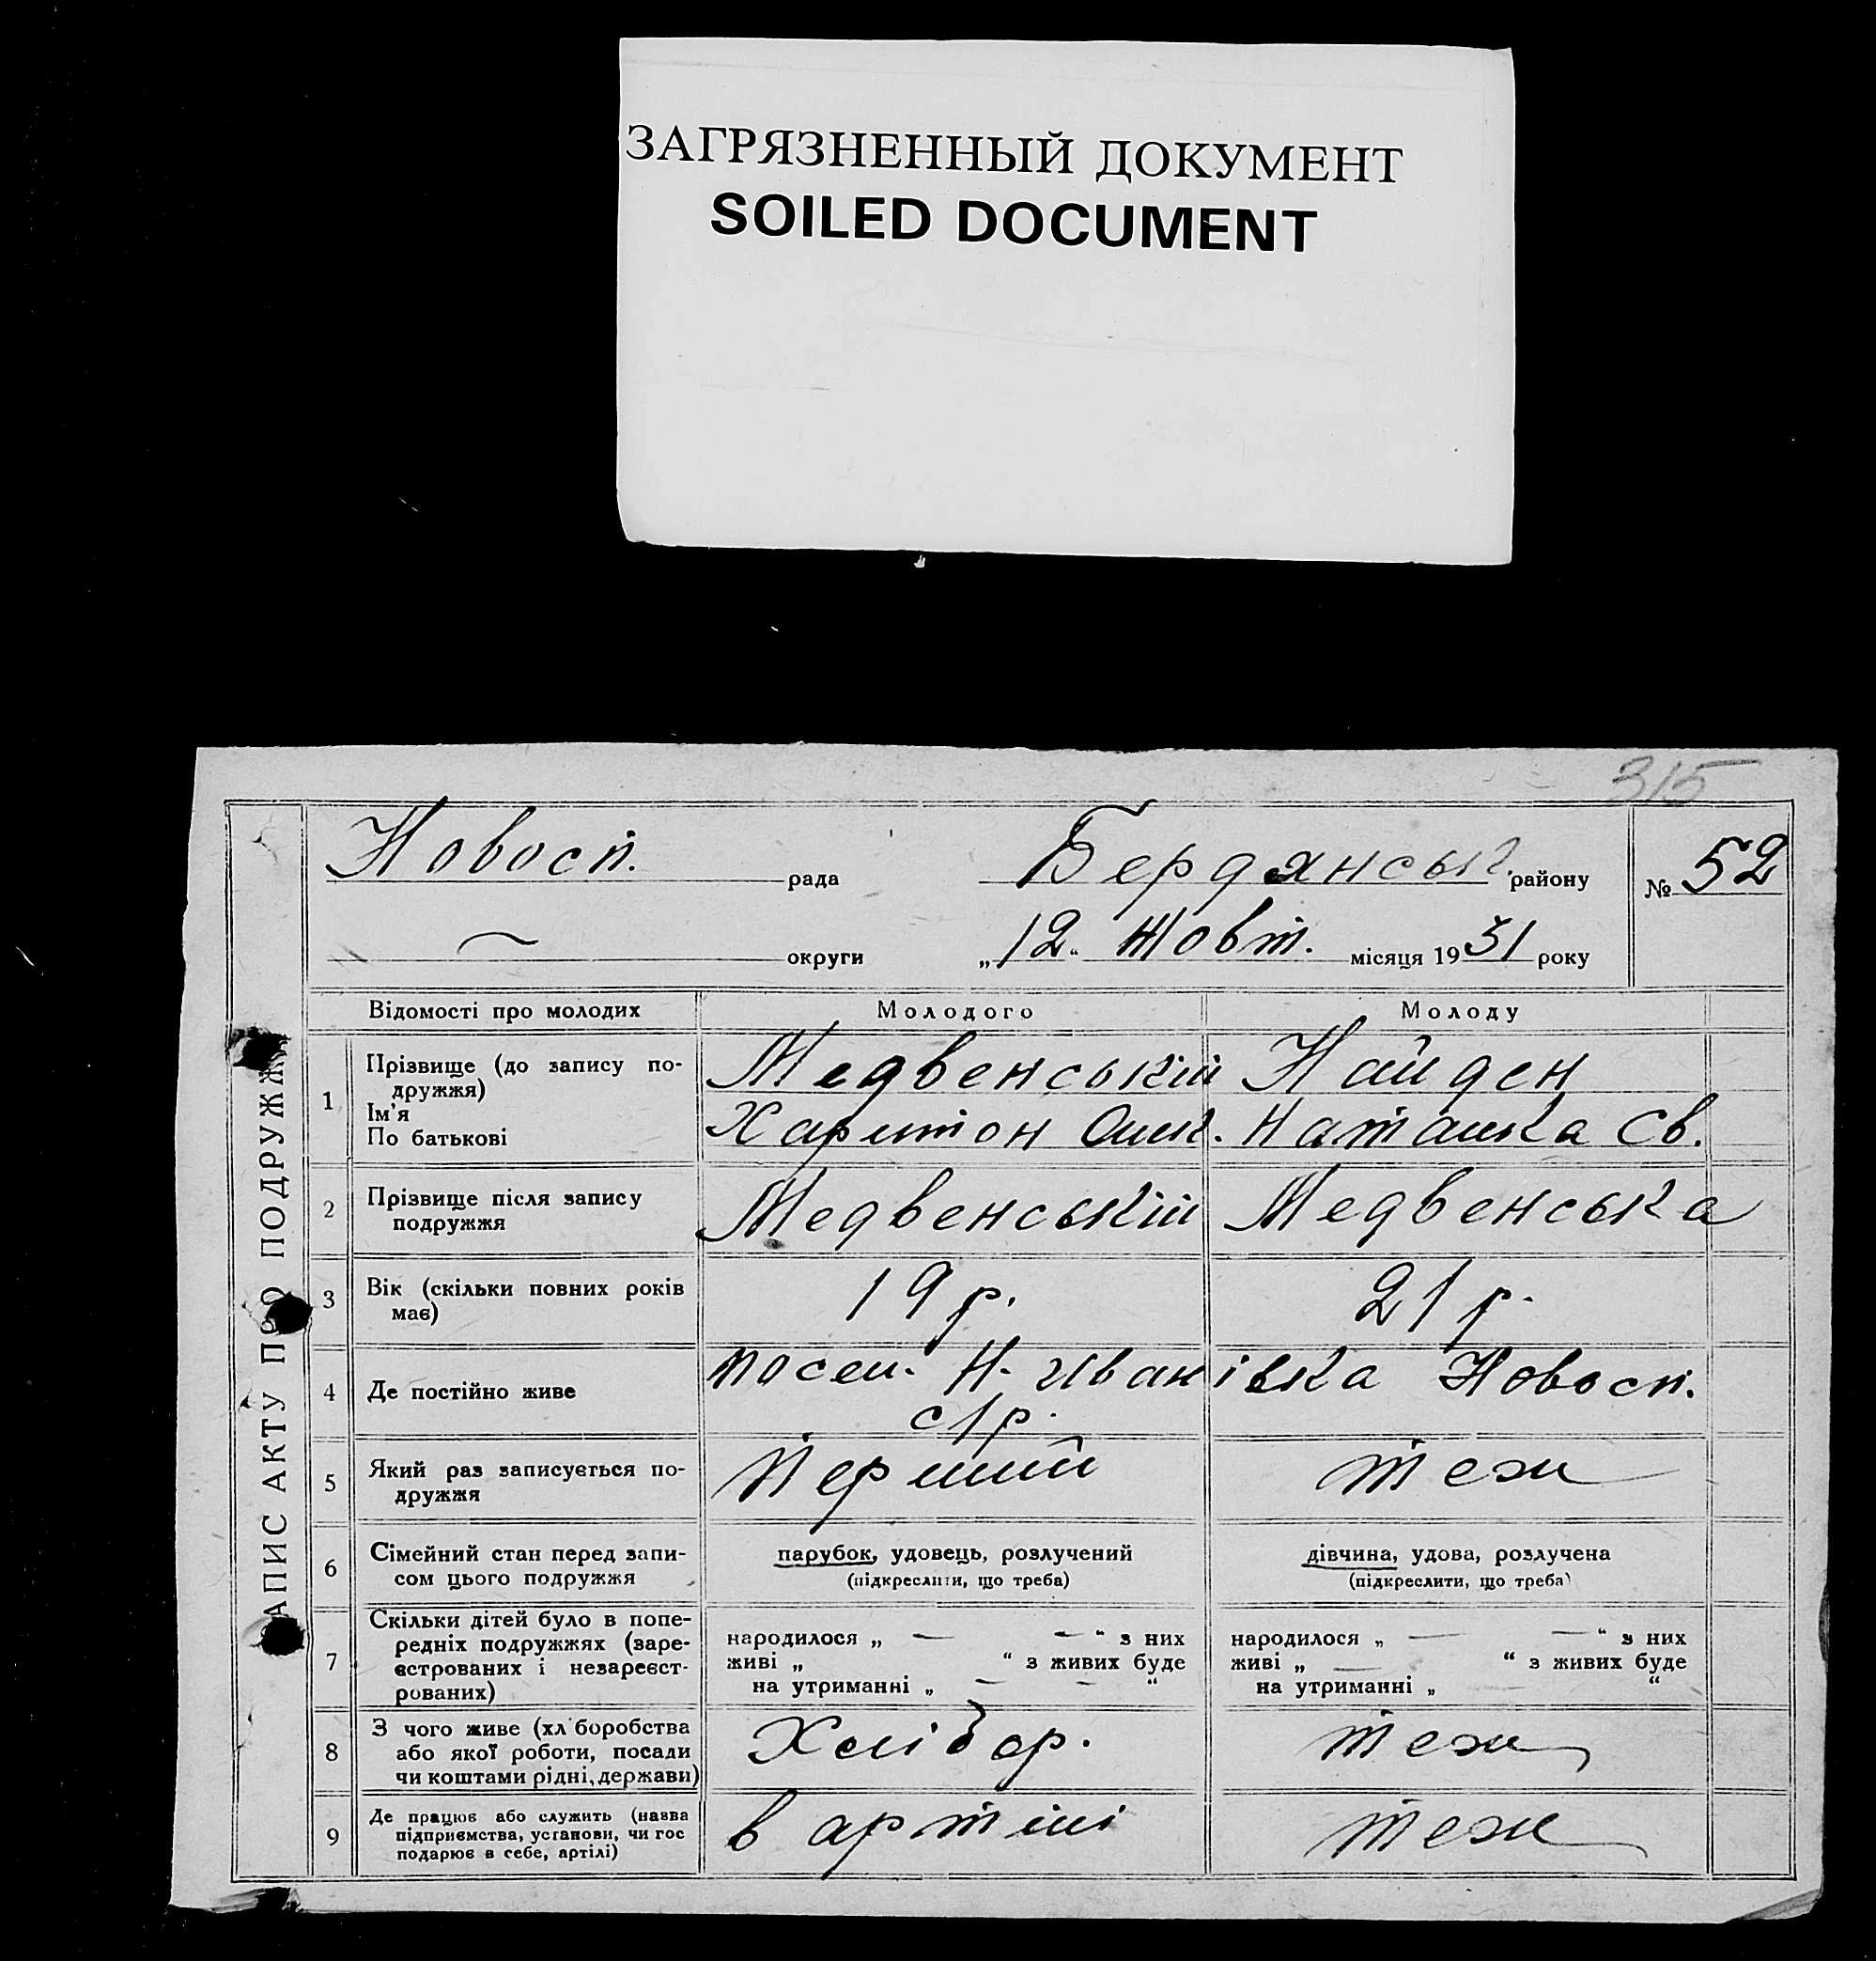 ЗАГРЯЗНЕННЫЙ ДОКУМЕНТ
SOILED DOCUMENT
315
Новосп. рада Бердянськ. району № 52
округи „12“ Жовт. місяця 1931 року
АПИС АКТУ ПРО ПОДРУЖЖ
Відомості про молодих Молодого Молоду
1 Прізвище (до запису по-
дружжя) Медвенський Найден
Ім'я
По батькові Харитон Наташка Св.
2 Прізвище після запису
подружжя Медвенський Медвенська
3 Вік (скільки повних років
має) 19 р. 21 р.
4 Де постійно живе посел. Н-Иванівка Новосп.
с/р.
5 Який раз записується по-
дружжя Перший теж
6 Сімейний стан перед запи-
сом цього подружжя
парубок, удовець, розлучений дівчина, удова, розлучена
(підкреслити, що треба) (підкреслити, що треба)
7 Скільки дітей було в попе-
редніх подружжях (заре-
єстрованих і незареєст-
рованих)
народилося „ — — “ з них народилося „ — — “ з них
живі „ “ з живих буде живі „ — “ з живих буде
на утриманні „ — — “ на утриманні „ “
8 З чого живе (хліборобства
або якої роботи, посади
чи коштами рідні, держави) Хлібор. теж
9 Де працює або служить (назва
підприємства, установи, чи гос
подарює в себе, артілі) в артілі теж